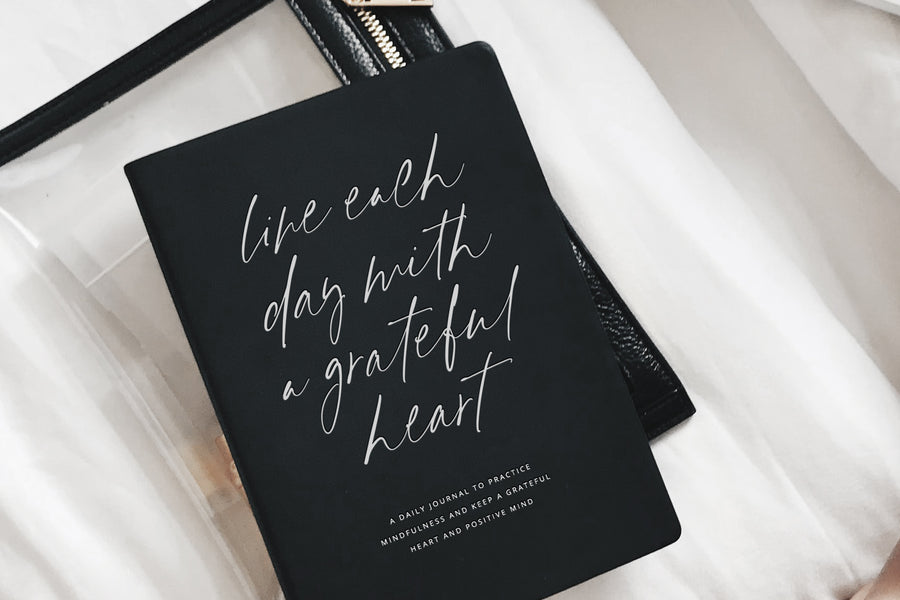 live each
day with
a grateful
heart
A DAILY JOURNAL TO PRACTICE
MINDFULNESS AND KEEP A GRATEFUL
HEART AND POSITIVE MIND